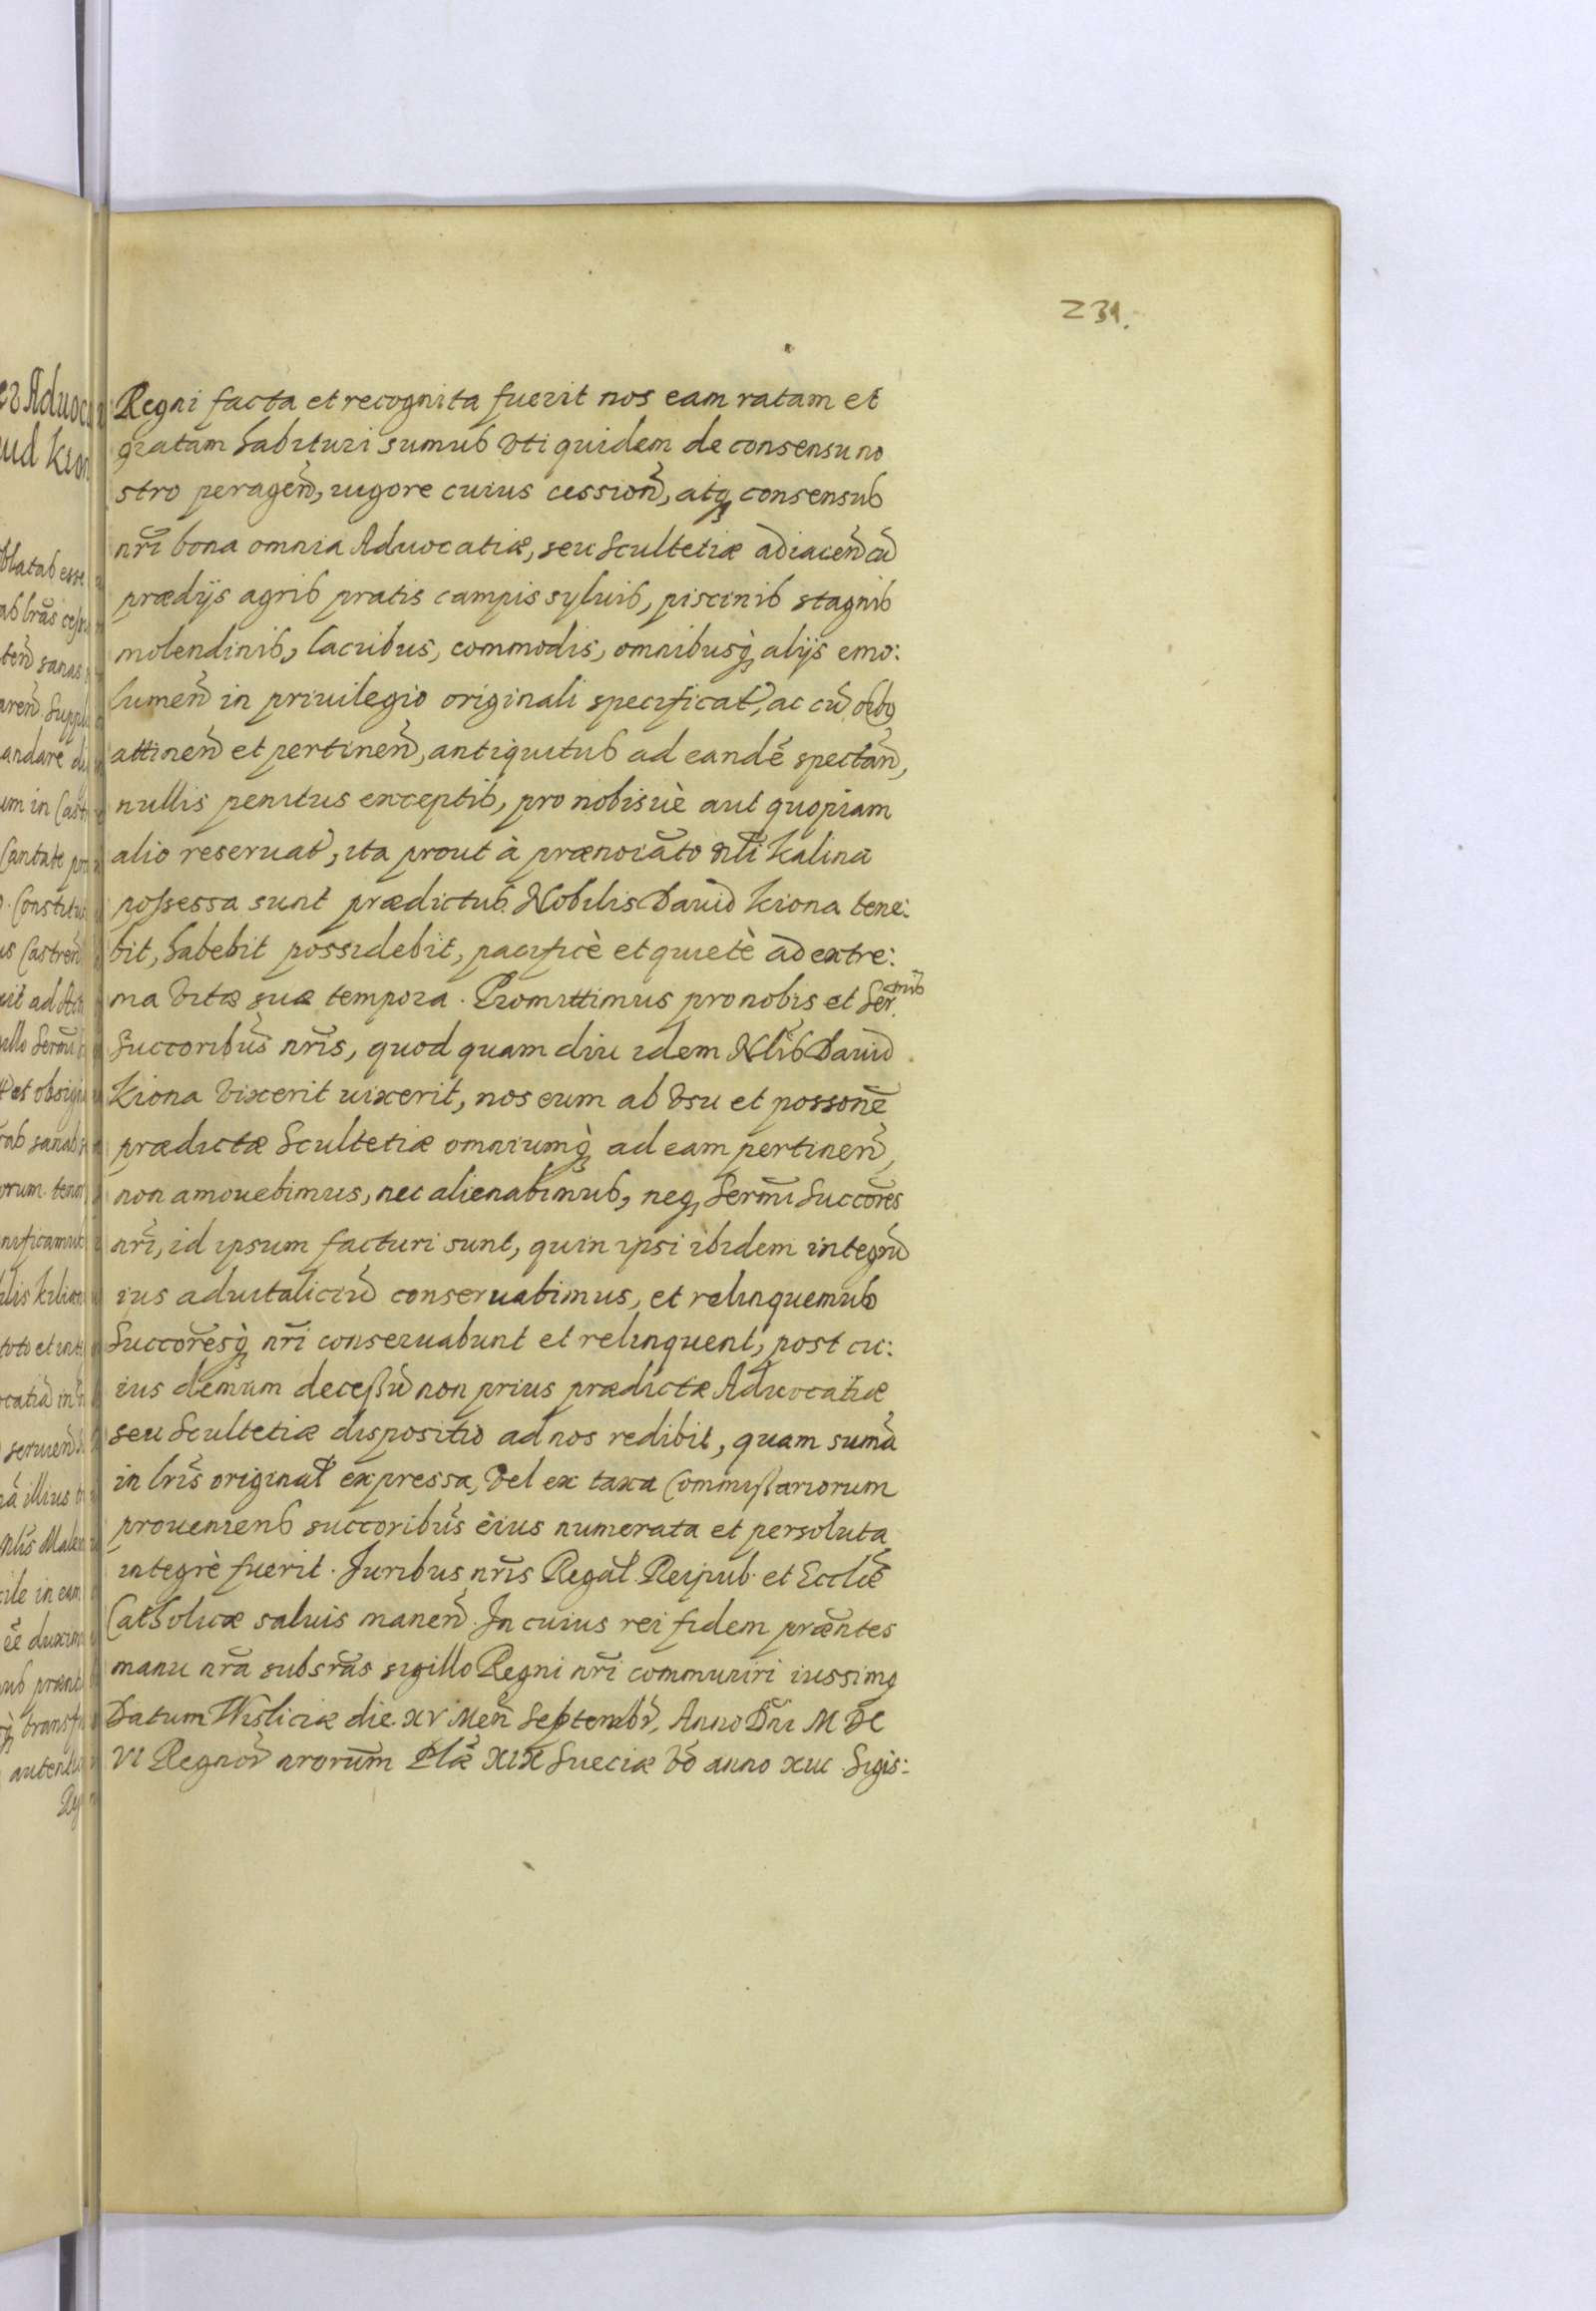 231.
Regni facta et recognita fuerit nos eam ratam et
gratam habituri sumus vti quidem de consensu no
stro peragen̄, uigore cuius cession̄, atq̨ consensus
nr̄i bona omnia Aduocatiæ, seu Scultetiæ adiacen̄ cū
prædijs agris pratis campis syluis, piscinis stagnis
molendinis, lacubus, commodis, omnibusq̨̀ alijs emo:
lumen̄ in priuilegio originali specificat̄, ac cū oībq̨
attinen̄ et pertinen̄, antiquitus ad eandē spectan̄,
nullis penitus exceptis, pro nobisuè aut quopiam
alio reseruat̄, ita prout à prænoīato nl̄i Kalina
possessa sunt prædictus Nobilis Dauid Kiona tene:
bit, habebit possidebit, pacificè et quietè ad extre:
ma vitæ suæ tempora. Promittimus pro nobis et Ser.mis
Succoribus̄ nr̄is, quod quam diu idem Nl̄is Dauid
Kiona vixerit uixerit, nos eum ab vsu et possonē
prædictæ Scultetiæ omniumq̨̀ ad eam pertinen̄,
non amouebimus, nec alienabimus, neq̨ Sermī Succor̄es
nr̄i, id ipsum facturi sunt, quin ipsi ibidem integrū
ius aduitaliciū conseruabimus, et relinquemus
Succor̄esq̨̀ nr̄i conseruabunt et relinquent, post cu:
ius demum decessū non prius prædictæ Aduocatiæ
seu Scultetiæ dispositio ad nos redibit, quam sum̄a
in lr̄is original̄ expressa, vel ex taxa Commissariorum
proueniens succoribus̄ èius numerata et persoluta
integrè fuerit. Juribus nr̄is Regal̄. Reipub. et Eccliǣ
Catholicæ saluis manen̄. In cuius rei fidem præn̄tes
manu nr̄a subsr̄as sigillo Regni nr̄i communiri iussimq̨
Datum Wisliciæ die. XV Men̄ Septembr̄, Anno Dn̄i M DC
VI Regnor̄ nrorum̄ Plǣ XIX Sueciæ vō anno XIII. Sigis: